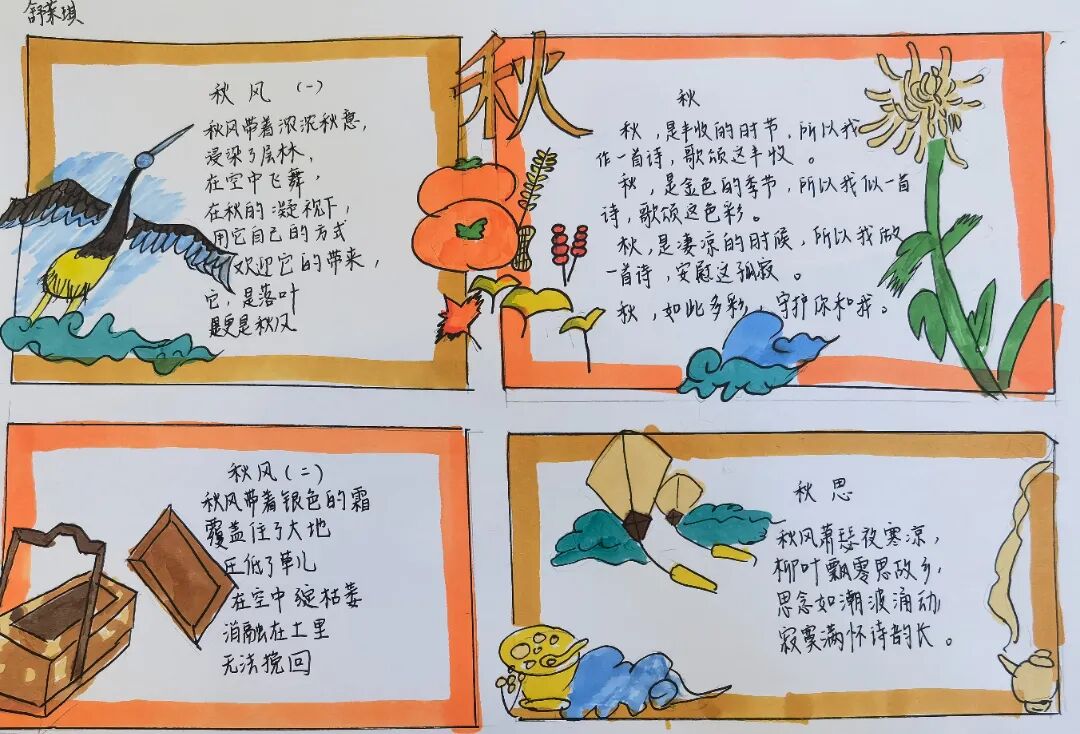 舒莱琪
秋
秋风（一）
秋风带着浓浓秋意，
浸染了层林，
在空中飞舞，
在秋的凝视下，
用它自己的方式
欢迎它的带来，
它，是落叶
更是秋风
秋
秋，是丰收的时节，所以我
作一首诗，歌颂这丰收。
秋，是金色的季节，所以我似一首
诗，歌颂这色彩。
秋，是凄凉的时候，所以我做
一首诗，安慰这孤寂。
秋，如此多彩，守护你和我。
秋风（二）
秋风带着银色的霜
覆盖住了大地
压低了草儿
在空中绽枯萎
消融在土里
无法挽回
秋思
秋风萧瑟夜寒凉，
柳叶飘零思故乡，
思念如潮波涌动，
寂寞满怀诗韵长。